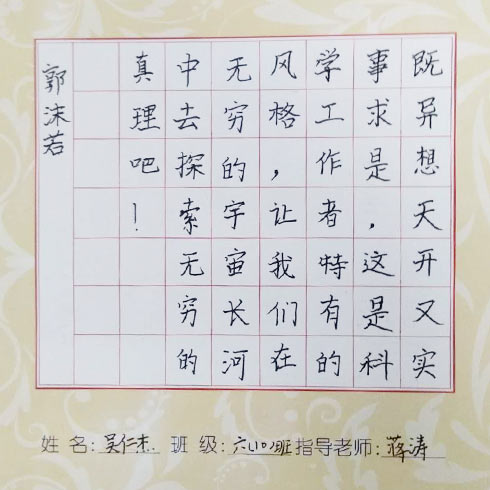 既异想天开又实
事求是，这是科
学工作者特有的
风格，让我们在
无穷的宇宙长河
中去探索无穷的
真理吧！
郭沫若
姓 名:吴仁杰 班 级:六(10)班 指导老师:蒋涛